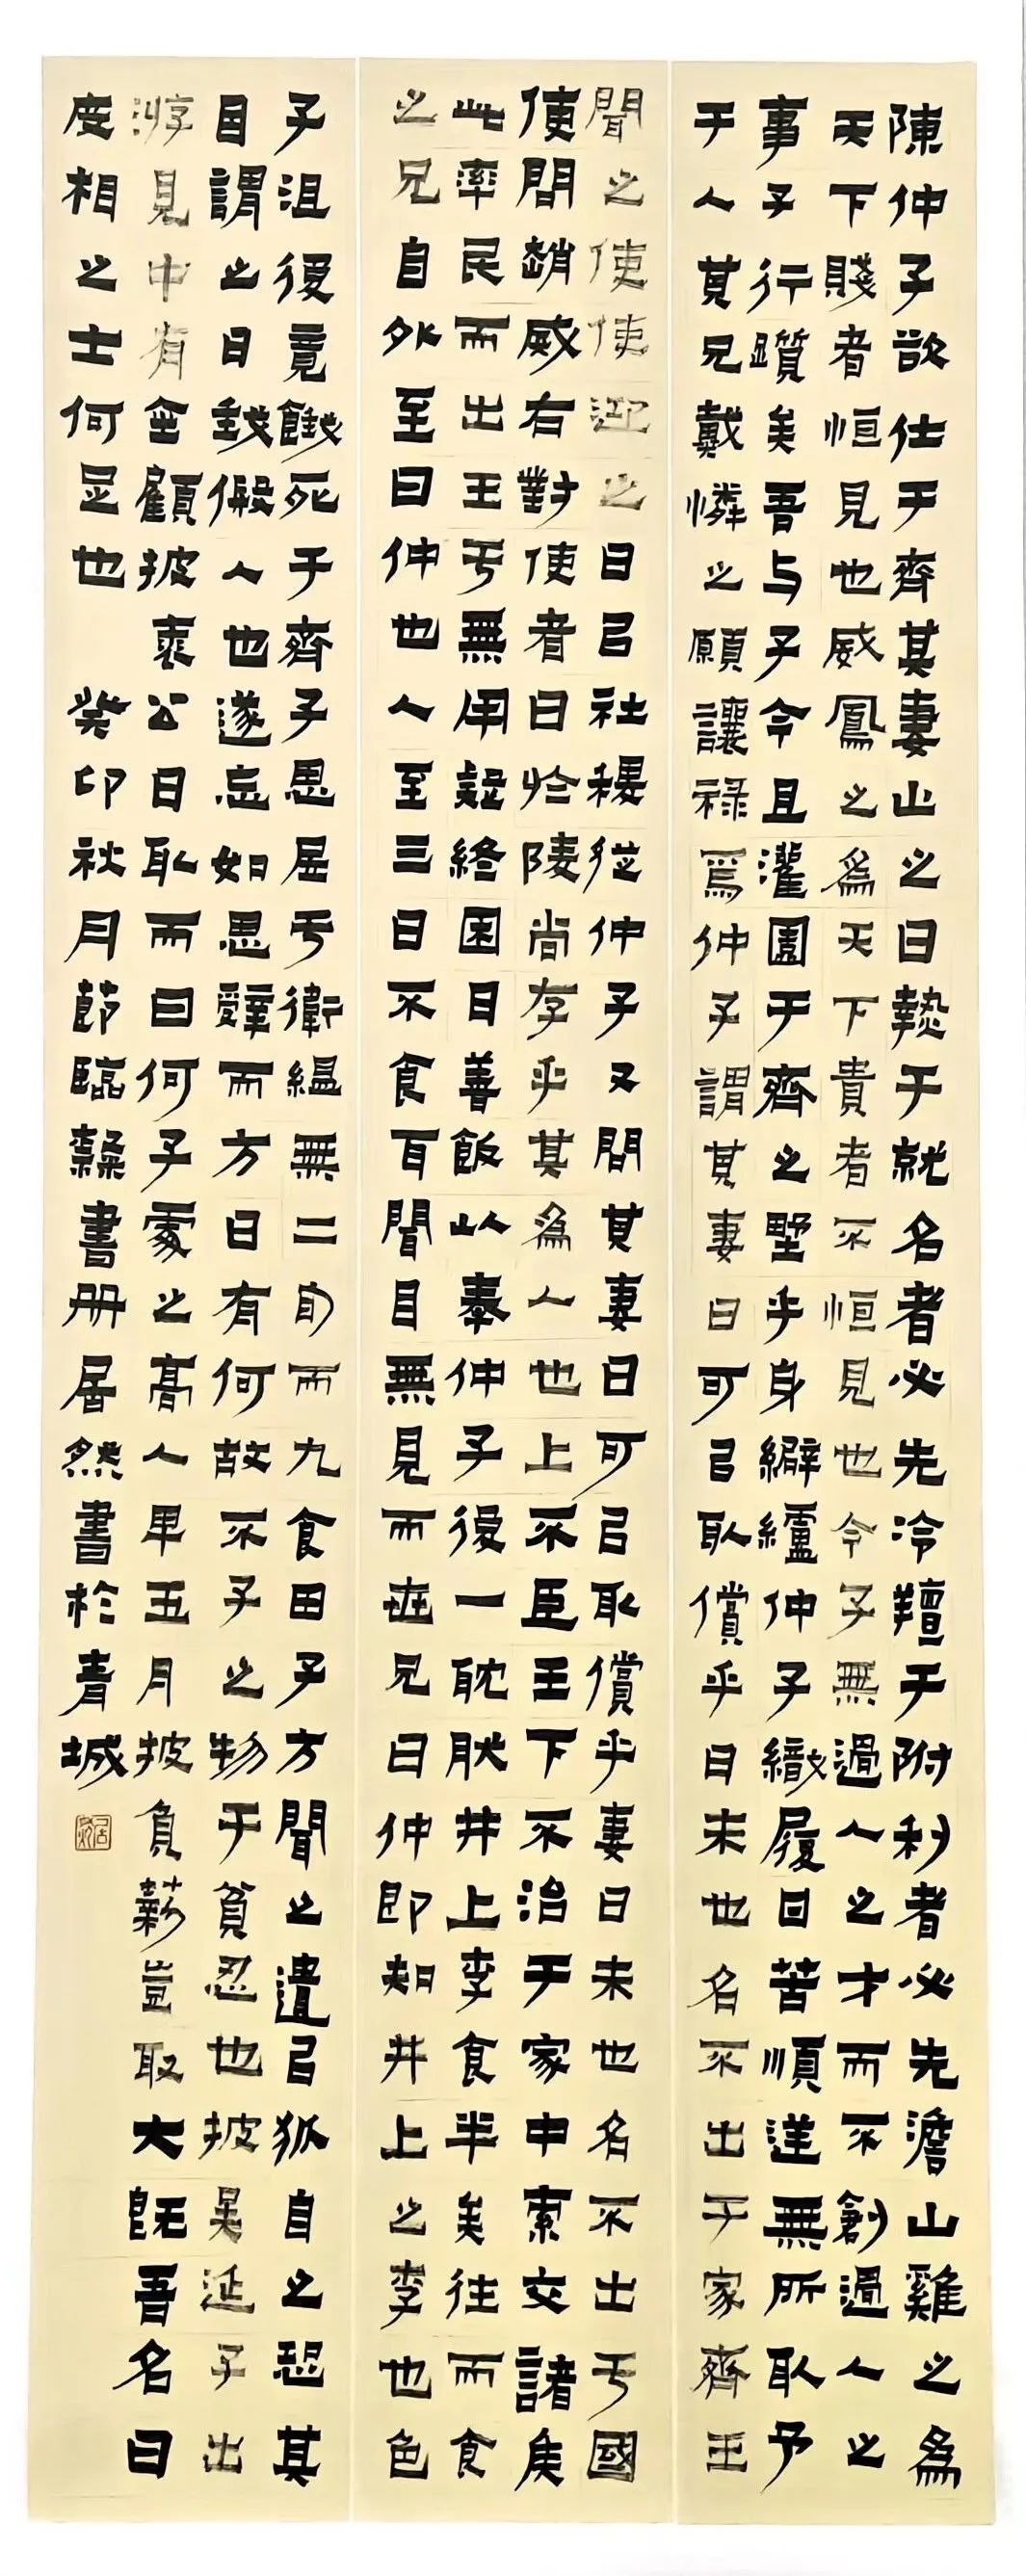 陳仲子欲仕于齊其妻止之曰熱于就名者必先冷羶于附利者必先澹山雞之為
天下賤者恒見也威鳳之為天下貴者不恒見也今子無過人之才而不創過人之
事子行躓矣吾与子今且灌園于齊之墅乎身繲纑仲子織屨曰苦順送無所取予
于人其兄戴憐之願讓祿焉仲子謂其妻曰可㠯取償乎曰未也名不出于家齊王
聞之使使迎之曰㠯社稷從仲子又問其妻曰可㠯取償乎妻曰未也名不出亏國
使問趙威右對使者曰於陵尚存乎其為人也上不臣王下不治于家中索交諸矦
此率民而出王亏無用疑終園日善飯以奉仲子後一耽耽井上李食半矣往而食
之兄自外至曰仲也人至三日不食百聞目無見而誑兄曰仲即知井上之李也色
子沮後竟餓死于齊子思居亏衛縕無二旬而九食田子方聞之遺㠯狐自之恐其
目謂之曰錢假人也遂忘如思辭而方曰有何故不子之物于貧忍也披吴延子出
游見中有金顧披裘公曰取而曰何子處之高人早五月披負薪豈取大既吾名曰
皮相之士何足也 癸卯秋月節臨隸書册居然書於青城